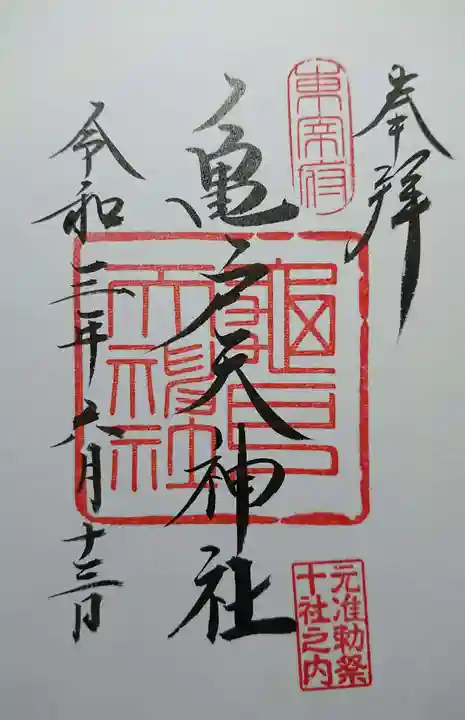 奉拝
東宰府
亀戸天神社
亀戸天神社
元准勅祭
十社之内
令和三年六月十三日